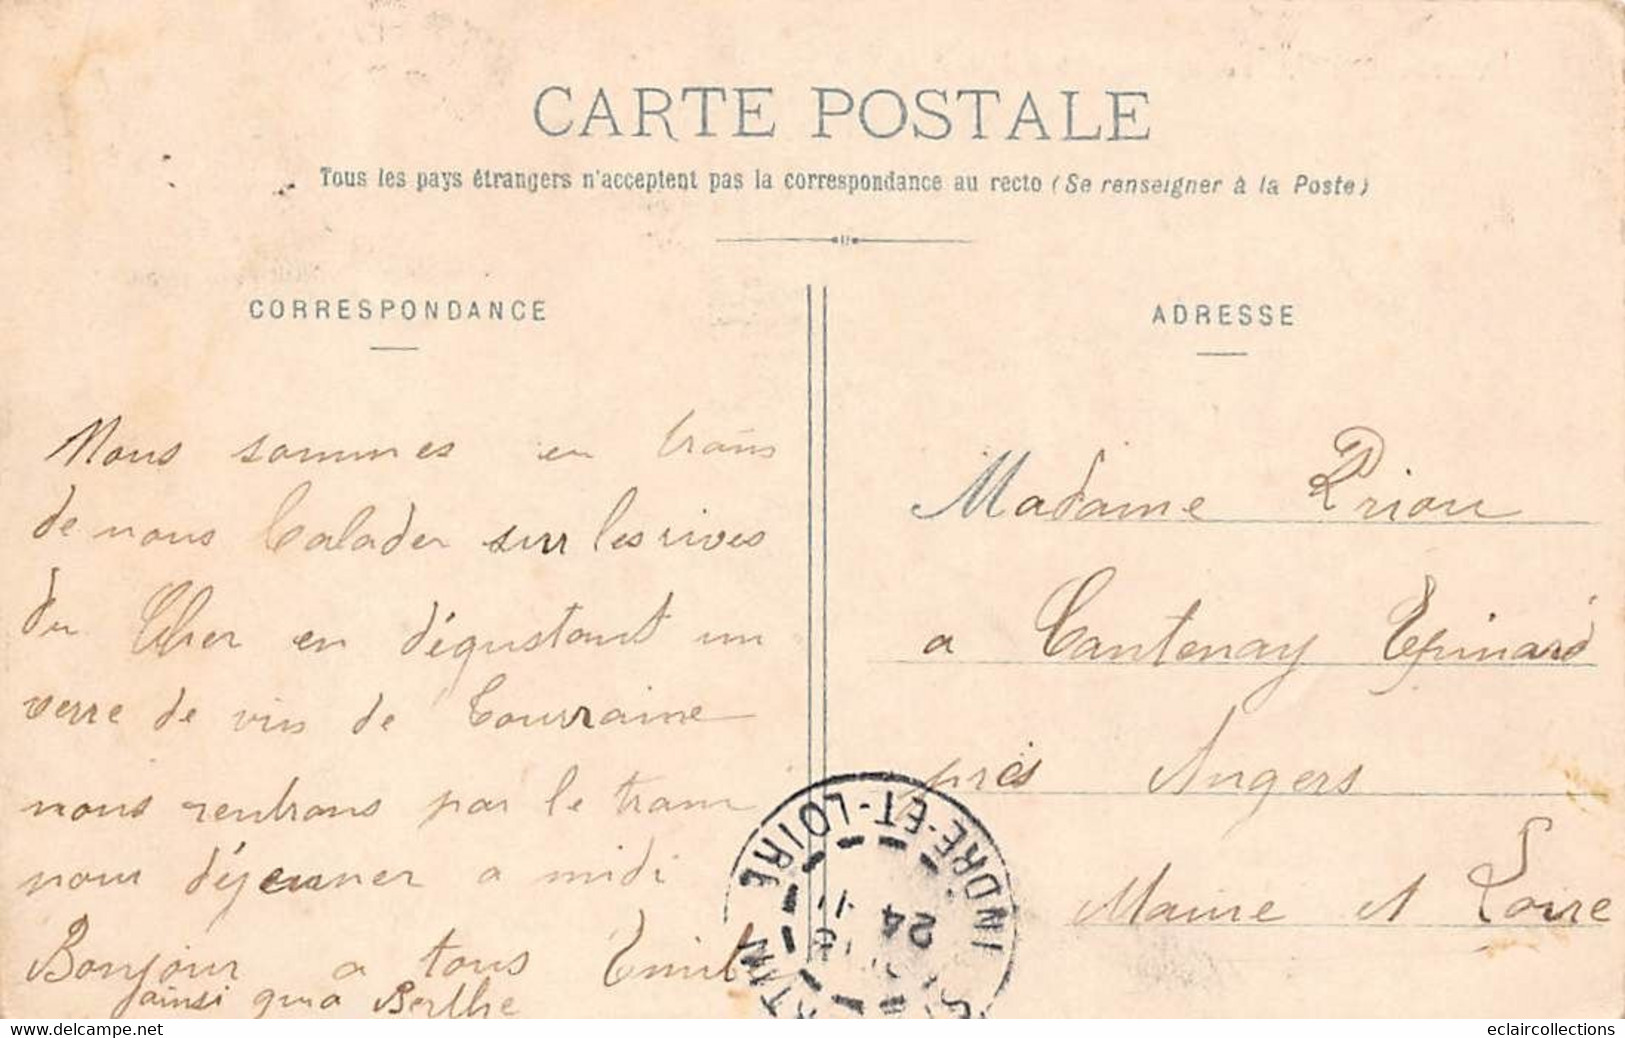 CARTE POSTALE
Tous les pays étrangers n'acceptent pas la correspondance au recto (Se renseigner à la Poste)
CORRESPONDANCE
Nous sommes en train
de nous balader sur les rives
du Cher en dégustant un
verre de vin de Touraine
nous rentrons par le tram
pour déjeuner a midi
Bonjour a tous Emile
ainsi qu'a Berthe
ADRESSE
Madame Priou
a Cantenay Epinard
près Angers
Maine et Loire
INDRE-ET-LOIRE
24
www.delcampe.net
eclaircollections